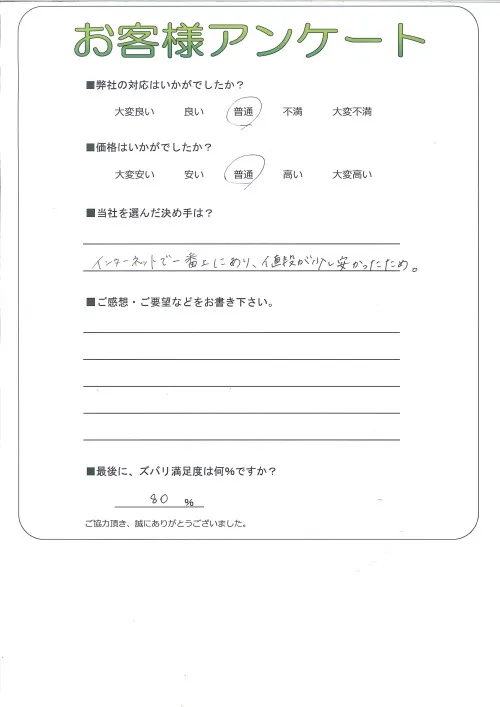 お客様アンケート
■弊社の対応はいかがでしたか？
大変良い 良い 普通 不満 大変不満
■価格はいかがでしたか？
大変安い 安い 普通 高い 大変高い
■当社を選んだ決め手は？
インターネットで一番上にあり、値段が少し安かったため。
■ご感想・ご要望などをお書き下さい。
■最後に、ズバリ満足度は何%ですか？
80 %
ご協力頂き、誠にありがとうございました。